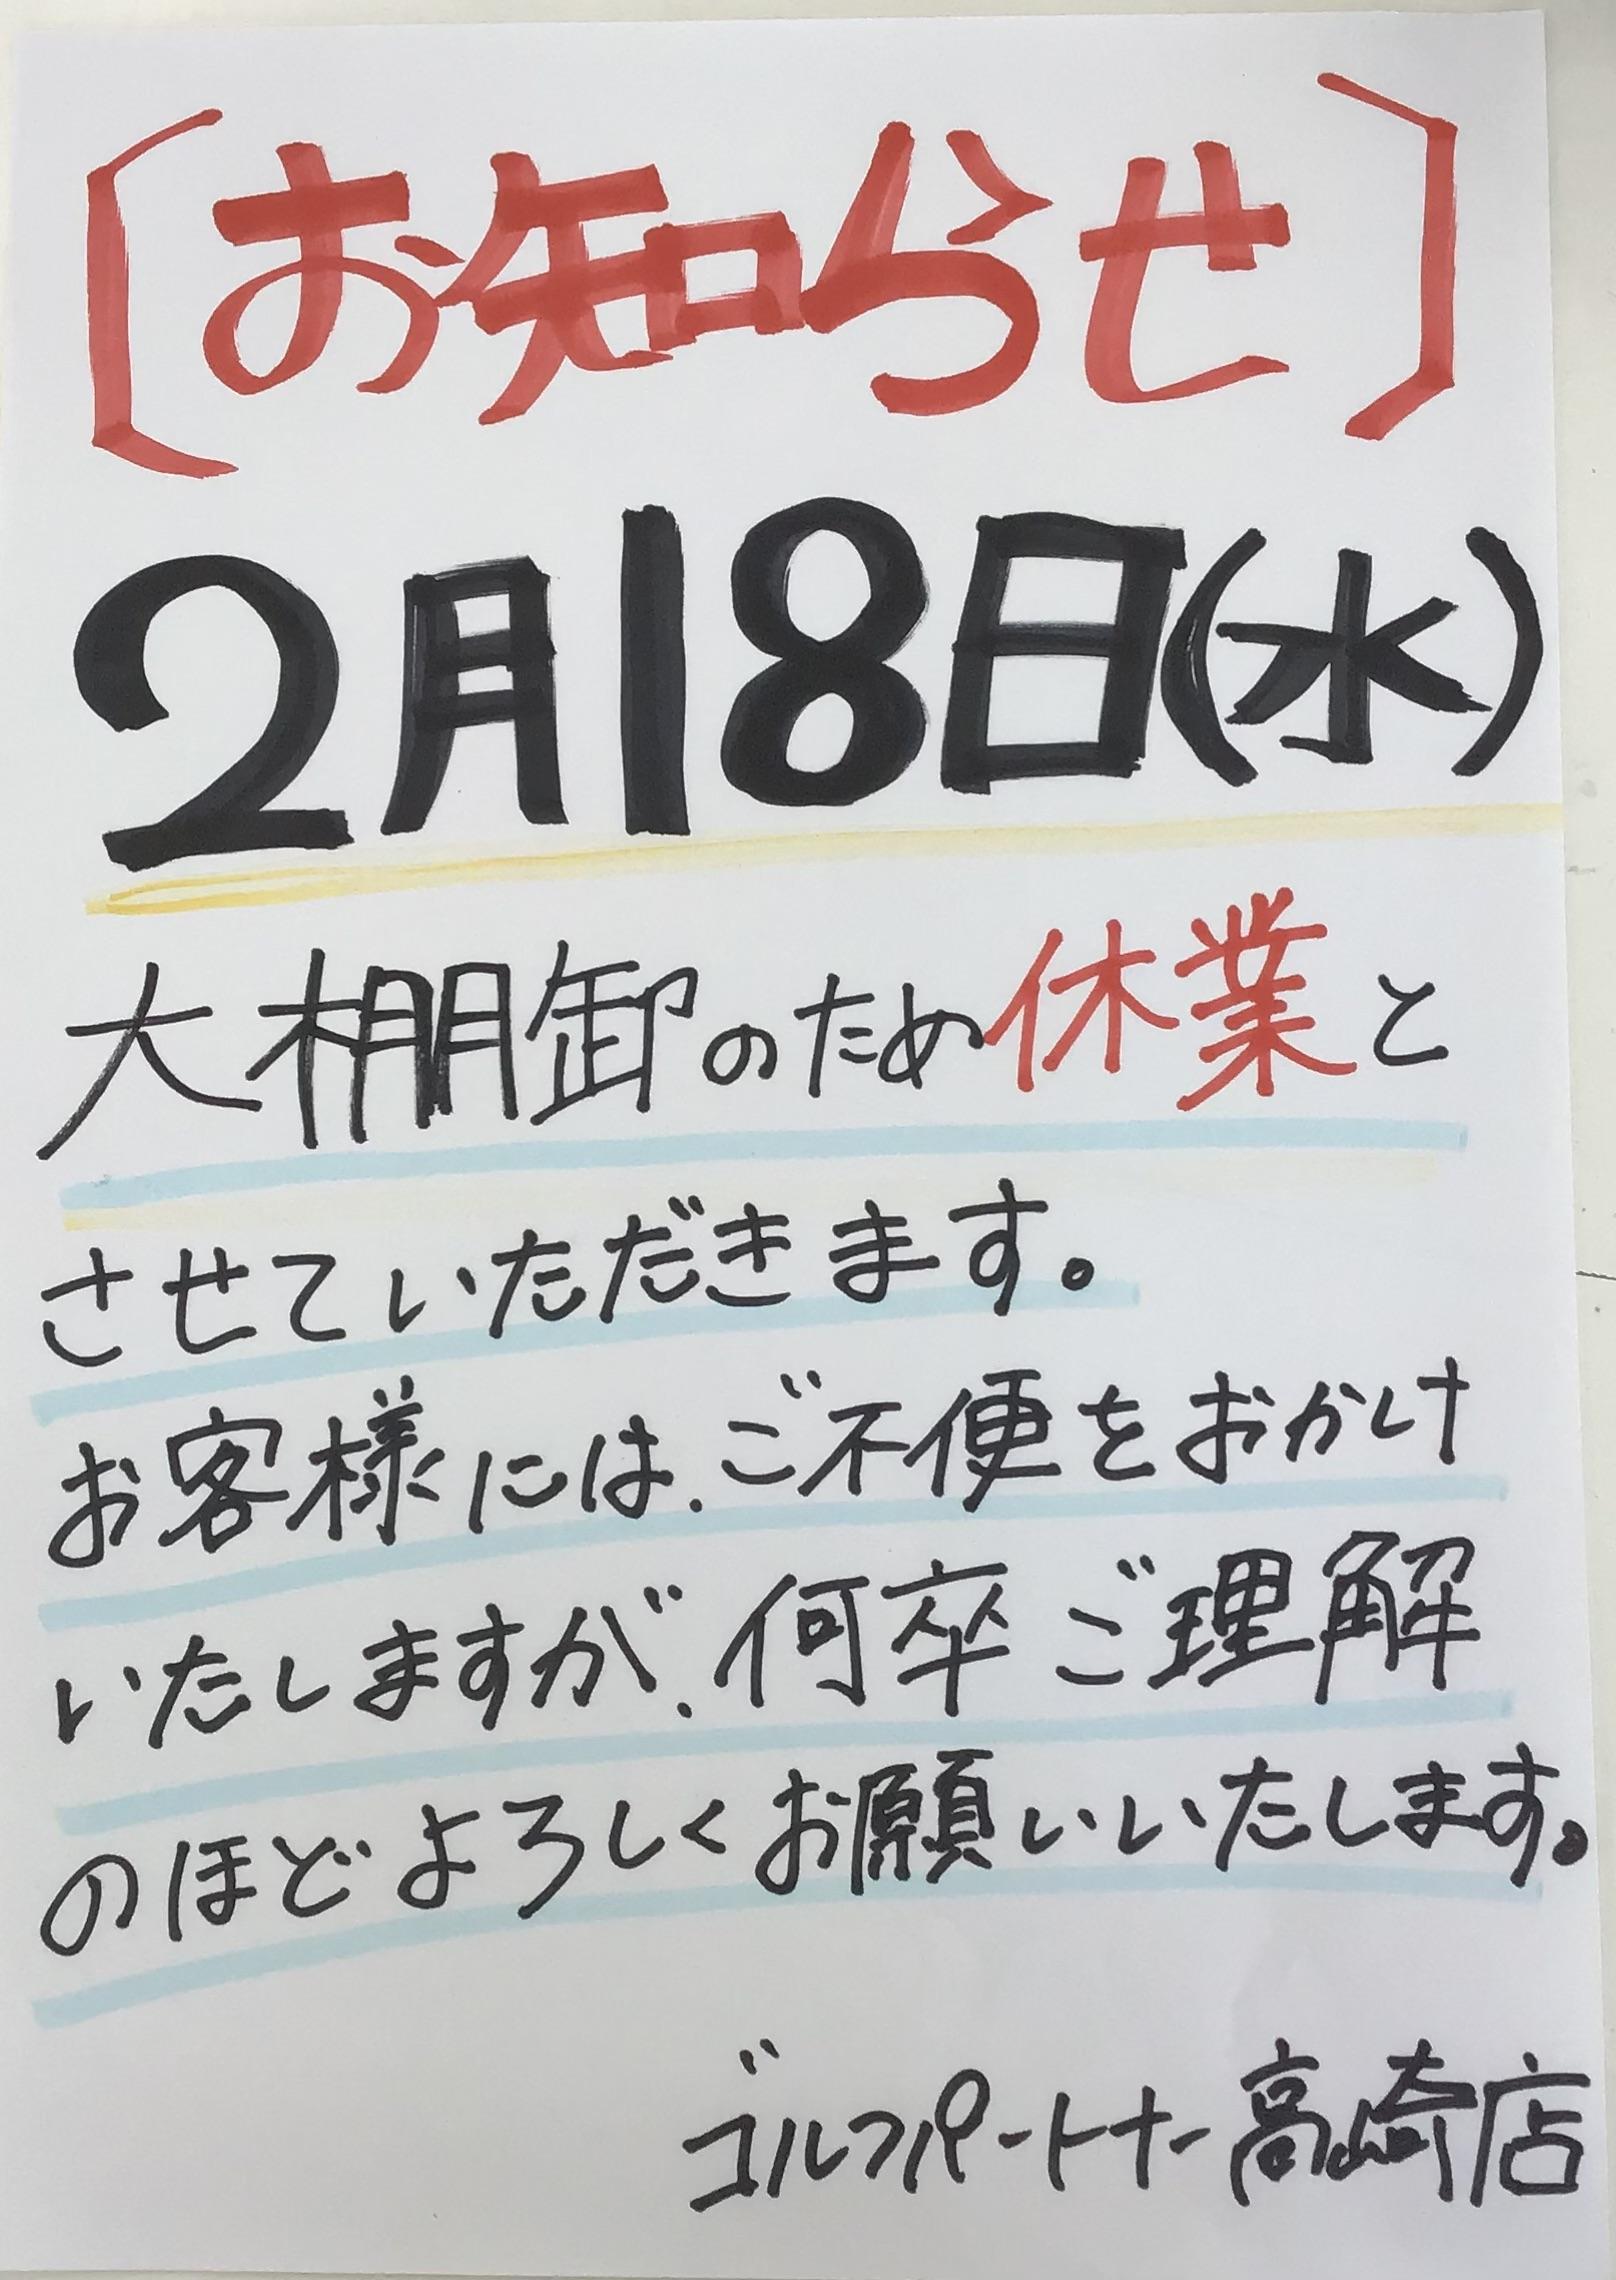 〔お知らせ〕
2月18日(水)
大棚卸のため休業と
させていただきます。
お客様には、ご不便をおかけ
いたしますが、何卒ご理解
のほどよろしくお願いいたします。
ゴルフパートナー高崎店